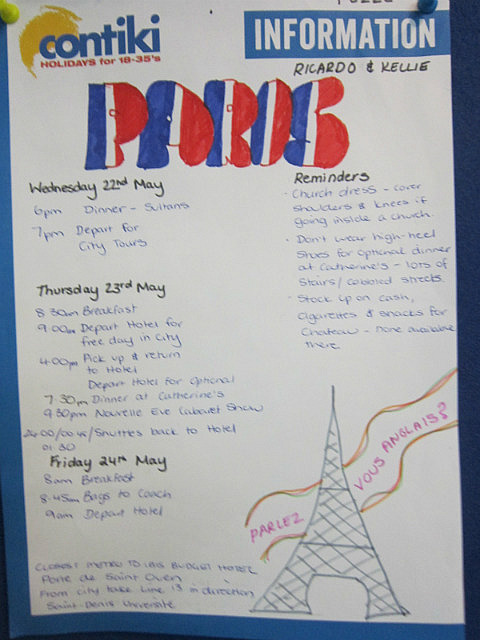 contiki
HOLIDAYS for 18-35's
INFORMATION
RICARDO & KELLIE
PARIS
Wednesday 22nd May
6pm Dinner - Sultans
7pm Depart for
City Tours
Thursday 23rd May
8 30am Breakfast
9.00am Depart Hotel for
free day in City
4.00pm Pick up & return
to Hotel
Depart Hotel for Optional
7.30pm Dinner at Catherine's
9.30pm Nouvelle Eve Cabaret Show
Shuttles back to Hotel
01.30
Friday 24th May
8am Breakfast
8.45am Bags to Coach
9am Depart Hotel
CLOSEST METRO TO IBIS BUDGET HOTEL
Porte de Saint Ouen
From City take Line 13 in direction
Saint-Denis Université
Reminders
- Church dress - cover
shoulders & knees if
going inside a church.
- Don't wear high-heel
shoes for optional dinner
at Catherine's - lots of
stairs/cobbled streets.
- Stock up on cash,
cigarettes & snacks for
Chateau - none available
there
PARLEZ
VOUS ANGLAIS?